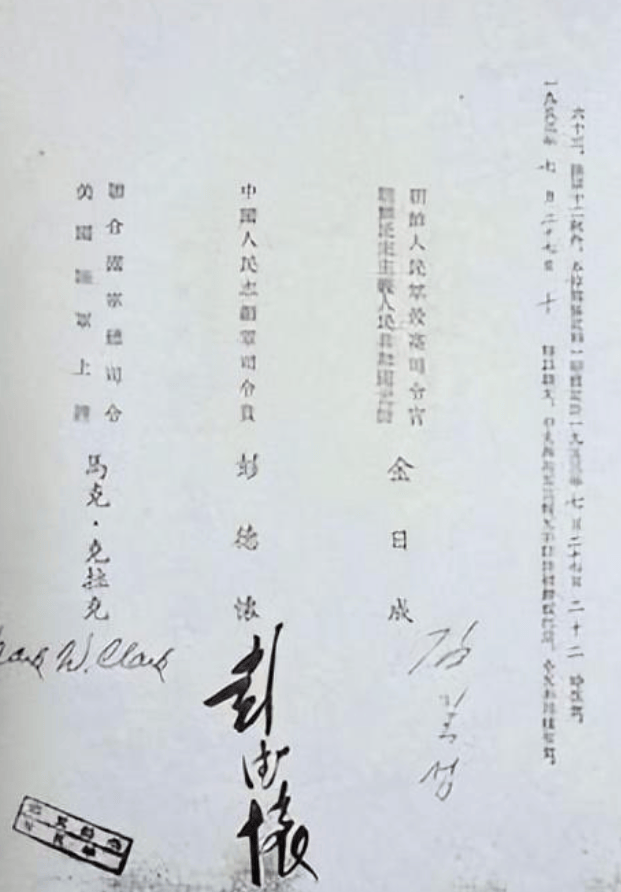 六十三、除第十二款外，本停戰協定的一切規定於一九五三年七月二十七日二十二時生效。
一九五三年七月二十七日十時以
朝鮮人民軍最高司令官
朝鮮民主主義人民共和國元帥
金日成
김일성
中國人民志願軍司令員
彭德懷
彭德懷
聯合國軍總司令
美國陸軍上將
馬克·克拉克
Mark W. Clark